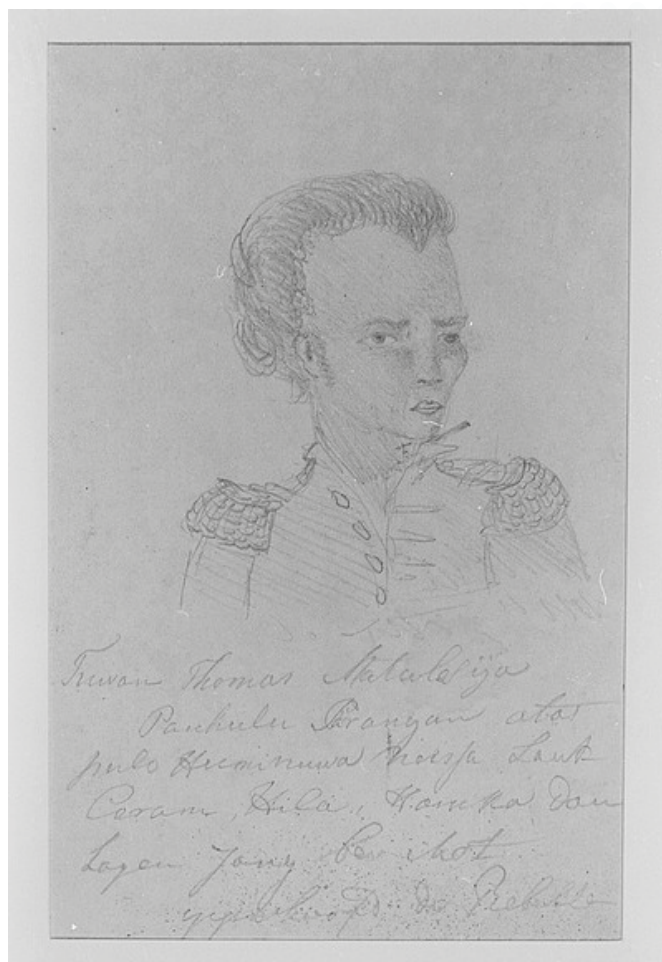 Tuwan Thomas Matulesija
Panhulu Prangan atas
pulo Haminuwa Noessa Laut
Ceram, Hila, Haruka dan
Lagen Jang ber
opperhoofd de Rebelle